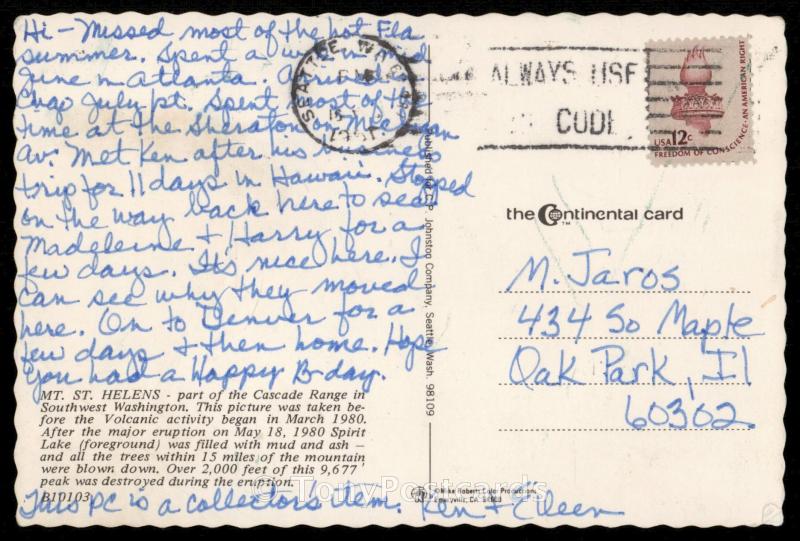 Hi - Missed most of the hot Fla
summer. Spent a week in mid
June in Atlanta. Arrived in
Chgo July 1st. Spent most of the
time at the Sheraton on Michigan
Av. Met Ken after his business
trip for 11 days in Hawaii. Stopped
on the way back here to see
Madeleine + Harry for a
few days. It's nice here. I
can see why they moved
here. On to Denver for a
few days + then home. Hope
you had a Happy B-day.
MT. ST. HELENS - part of the Cascade Range in
Southwest Washington. This picture was taken be-
fore the Volcanic activity began in March 1980.
After the major eruption on May 18, 1980 Spirit
Lake (foreground) was filled with mud and ash —
and all the trees within 15 miles of the mountain
were blown down. Over 2,000 feet of this 9,677'
peak was destroyed during the eruption.
B10103
This pc is a collectors item. Ken + Eileen
Published for C.P. Johnston Company, Seattle, Wash. 98109
SEATTLE, WA
1981
ALWAYS USE
CODE
USA 12c
FREEDOM OF CONSCIENCE-AN AMERICAN RIGHT
the Continental card
TM
M. Jaros
434 So Maple
Oak Park, Il
60302
©Mike Roberts Color Productions
Emeryville, CA. 94608
© TonyPostcards